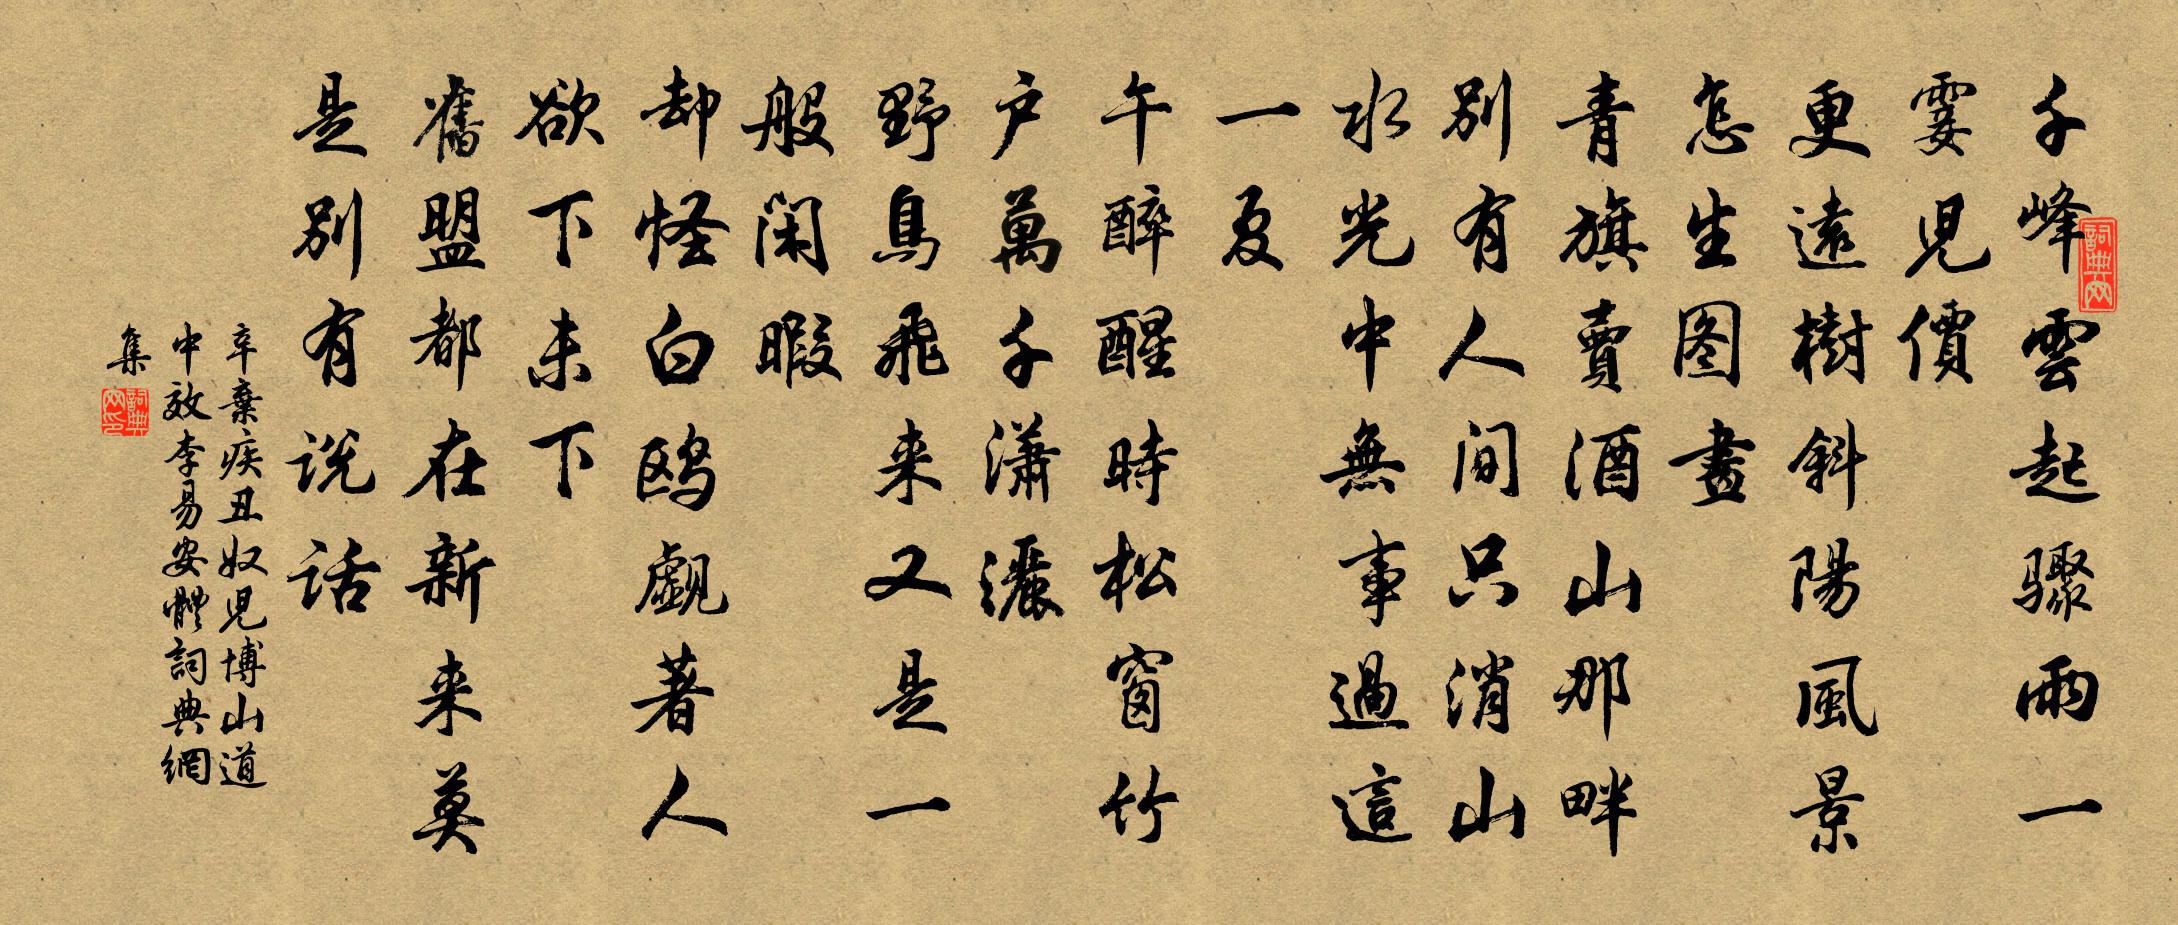 千峰雲起驟雨一
霎兒價
更遠樹斜陽風景
怎生图畫
青旗賣酒山那畔
別有人间只消山
水光中無事過這
一夏
午醉醒時松窗竹
户萬千潇灑
野鳥飛来又是一
般閑暇
却怪白鸥覷著人
欲下未下
舊盟都在新来莫
是別有说话
辛棄疾丑奴兒博山道
中效李易安體詞典網
集
詞典网
詞典网印